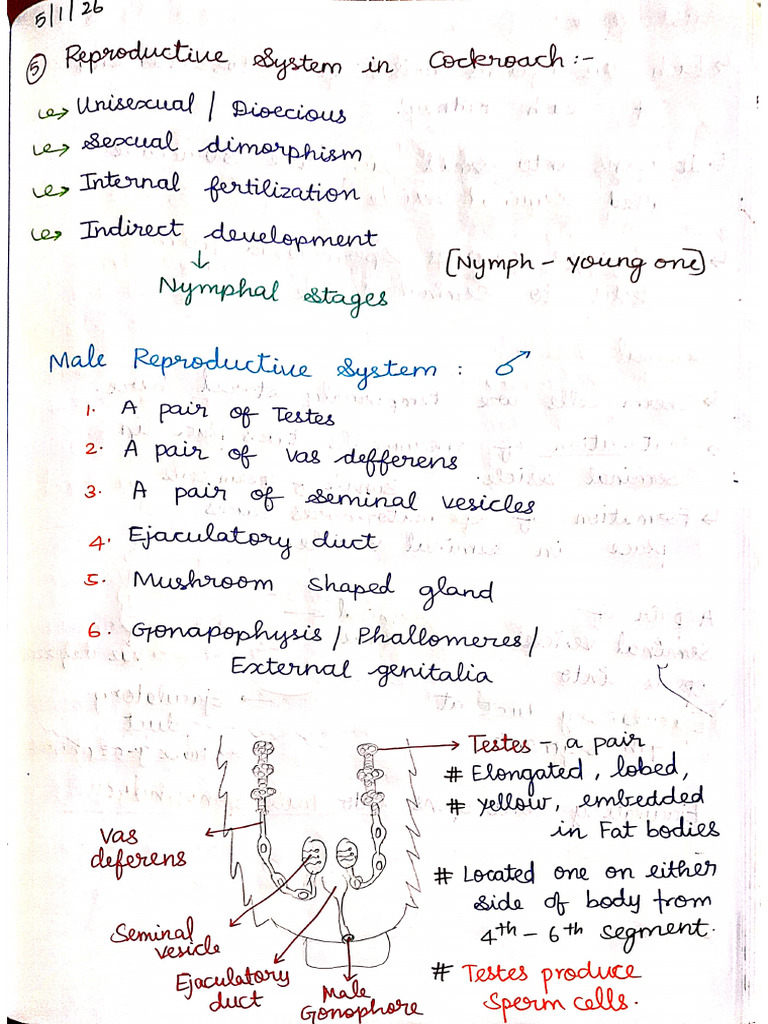 5/1/26
⑤ Reproductive System in Cockroach :-
↪ Unisexual / Dioecious
↪ Sexual dimorphism
↪ Internal fertilization
↪ Indirect development
↓
[Nymph - young one]
Nymphal stages
Male Reproductive System : ♂
1. A pair of Testes
2. A pair of vas defferens
3. A pair of seminal vesicles
4. Ejaculatory duct
5. Mushroom shaped gland
6. Gonapophysis / Phallomeres /
External genitalia
Testes - a pair
# Elongated, lobed,
# yellow, embedded
in Fat bodies
# Located one on either
side of body from
4th - 6th segment.
# Testes produce
Sperm cells.
Vas
deferens
Seminal
vesicle
Ejaculatory
duct
Male
Gonophore